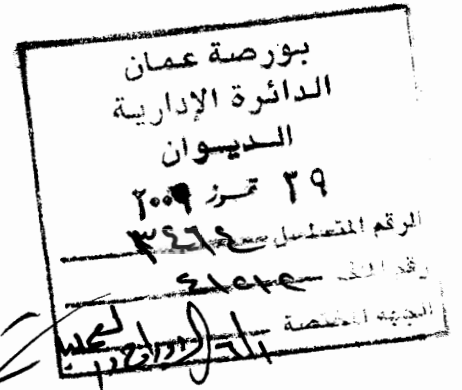 بورصة عمان
الدائرة الإدارية
الديوان
٢٩ تموز ٢٠٠٩
الرقم المتسلسل ٣٤٦٤
رقم الملف
الجهة المختصة